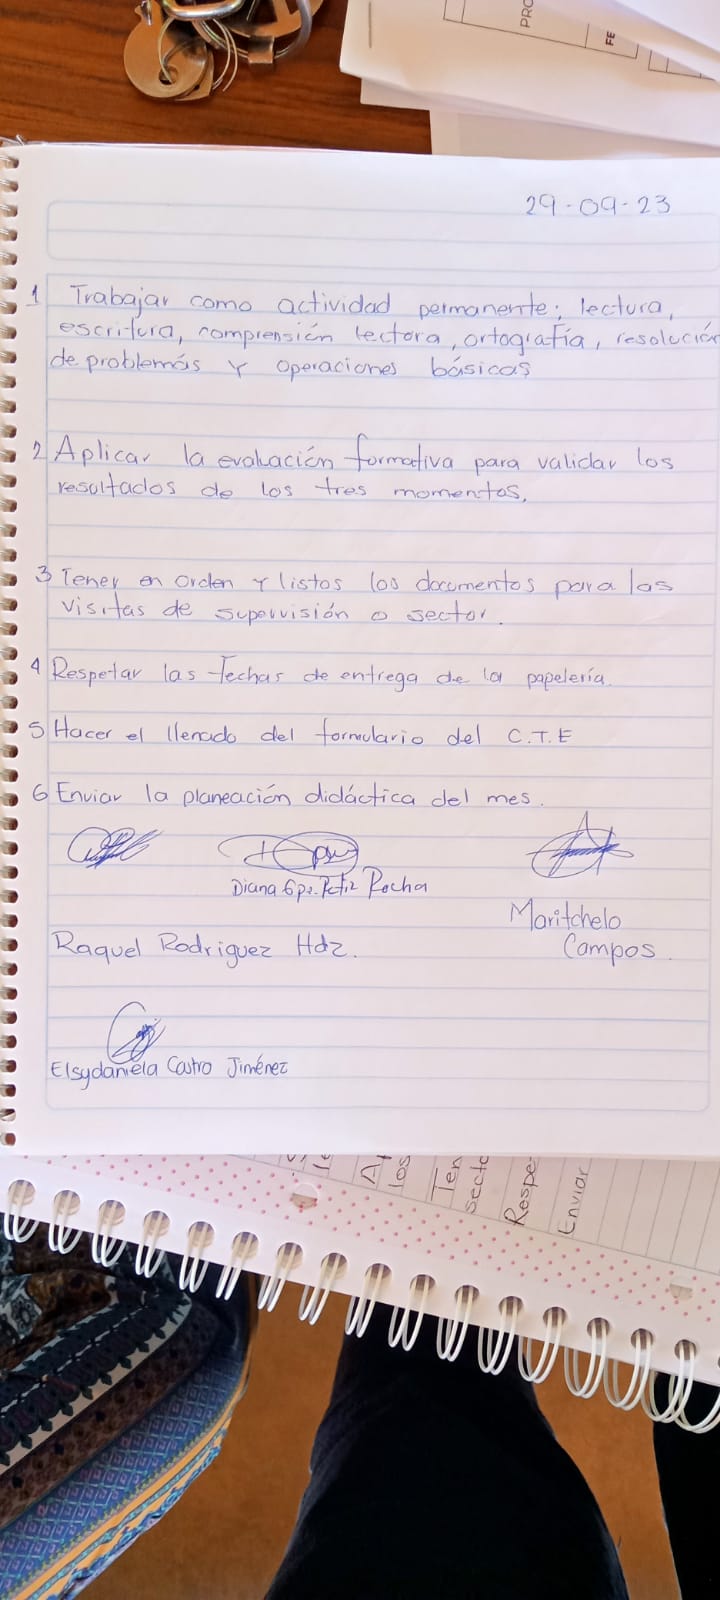 PRO
FE
29-09-23
1 Trabajar como actividad permanente: lectura,
escritura, comprensión lectora, ortografía, resolución
de problemás y operaciones básicas
2 Aplicar la evaluación formativa para validar los
resultados de los tres momentos.
3 Tener en orden y listos los documentos para las
visitas de supervisión o sector.
4 Respetar las fechas de entrega de la papelería.
5 Hacer el llenado del formulario del C.T.E
6 Enviar la planeación didáctica del mes.
Diana Gpe. Rocha
Maritchelo
Campos.
Raquel Rodriguez Hdz.
Elsydaniela Castro Jiménez
los
Ten
secto
Respe
Enviar